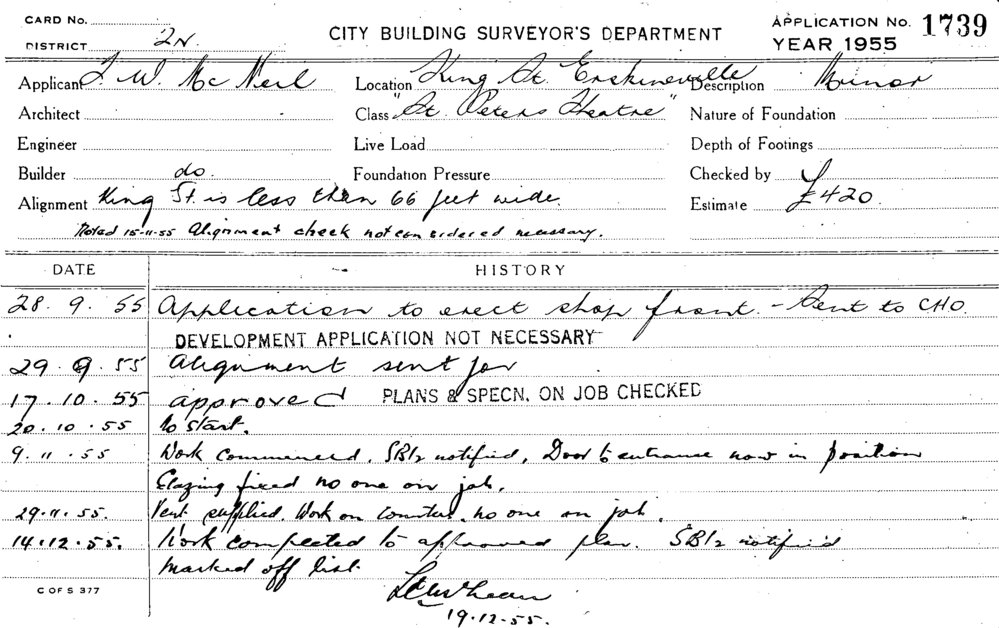 CARD No.
DISTRICT 2N.
CITY BUILDING SURVEYOR'S DEPARTMENT
APPLICATION No. 1739
YEAR 1955
Applicant J. W. McNeil
Location King St. Erskineville
Description Minor
Architect
Class "St. Peters Theatre"
Nature of Foundation
Engineer
Live Load
Depth of Footings
Builder do.
Foundation Pressure
Checked by
Alignment King St. is less than 66 feet wide.
Estimate £420.
Noted 15-11-55 Alignment check not considered necessary.
DATE HISTORY
28. 9. 55 Application to erect shop front. - Sent to CHO.
DEVELOPMENT APPLICATION NOT NECESSARY
29. 9. 55 Alignment sent for
17. 10. 55 approved PLANS & SPECN. ON JOB CHECKED
20. 10. 55 to start.
9. 11. 55 Work commenced. SB1/2 notified, Door to entrance now in position
Glazing fixed no one on job.
29. 11. 55. Vent supplied. Work on counter. no one on job.
14. 12. 55. Work completed to approved plan. SB1/2 notified
marked off list
C OF S 377
19-12-55.